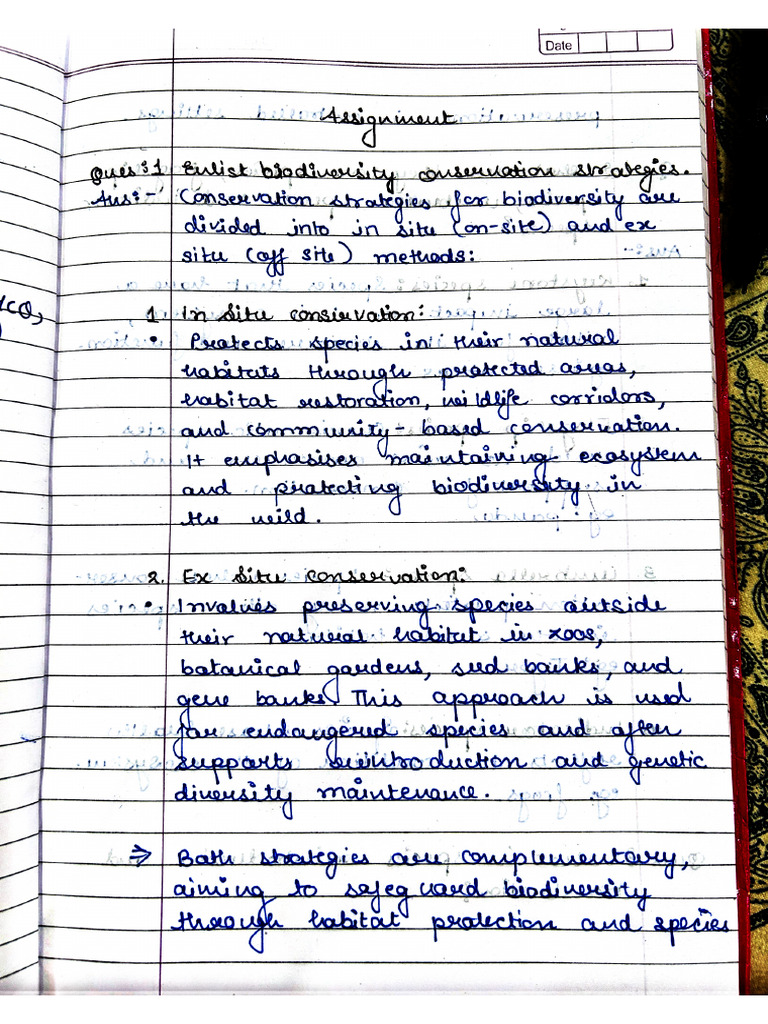 Date
Assignment
Ques:1 Enlist biodiversity conservation strategies.
Ans:- Conservation strategies for biodiversity are
divided into in situ (on-site) and ex
situ (off site) methods:
1 In Situ conservation:
• Protects species in their natural
habitats through protected areas,
habitat restoration, wildlife corridors,
and community-based conservation.
It emphasises maintaining ecosystem
and protecting biodiversity in
the wild.
2. Ex Situ conservation:
• Involves preserving species outside
their natural habitat in zoos,
botanical gardens, seed banks, and
gene banks. This approach is used
for endangered species and often
supports reintroduction and genetic
diversity maintenance.
⇒ Both strategies are complementary,
aiming to safeguard biodiversity
through habitat protection and species